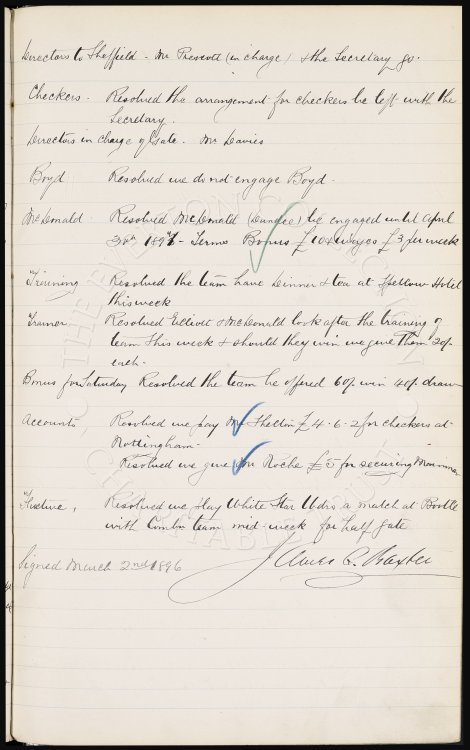 Directors to Sheffield - Mr Prescott (in charge) & the Secretary go.
Checkers. Resolved the arrangement for checkers be left with the
Secretary.
Directors in charge of Gate. Mr Davies
Boyd Resolved we do not engage Boyd.
McDonald Resolved McDonald (Dundee) be engaged until April
30th 1897 - Terms Bonus £10 & wages £3 per week
Training Resolved the team have dinner & tea at Spellow Hotel
this week
Trainer Resolved Elliott & McDonald look after the training of
team this week & should they win we give them 20/-
each.
Bonus for Saturday Resolved the team be offered 60/- win 40/- draw
Accounts, Resolved we pay Mr Shelton £4-6-2 for checkers at
Nottingham.
Resolved we give Mr Roche £5 for securing
Fixture, Resolved we play White Star Wdrs a match at Bootle
with Combn team mid-week for half gate
Signed March 2nd 1896 James C. Baxter
THE EVERTON COLLECTION
CHARITABLE TRUST